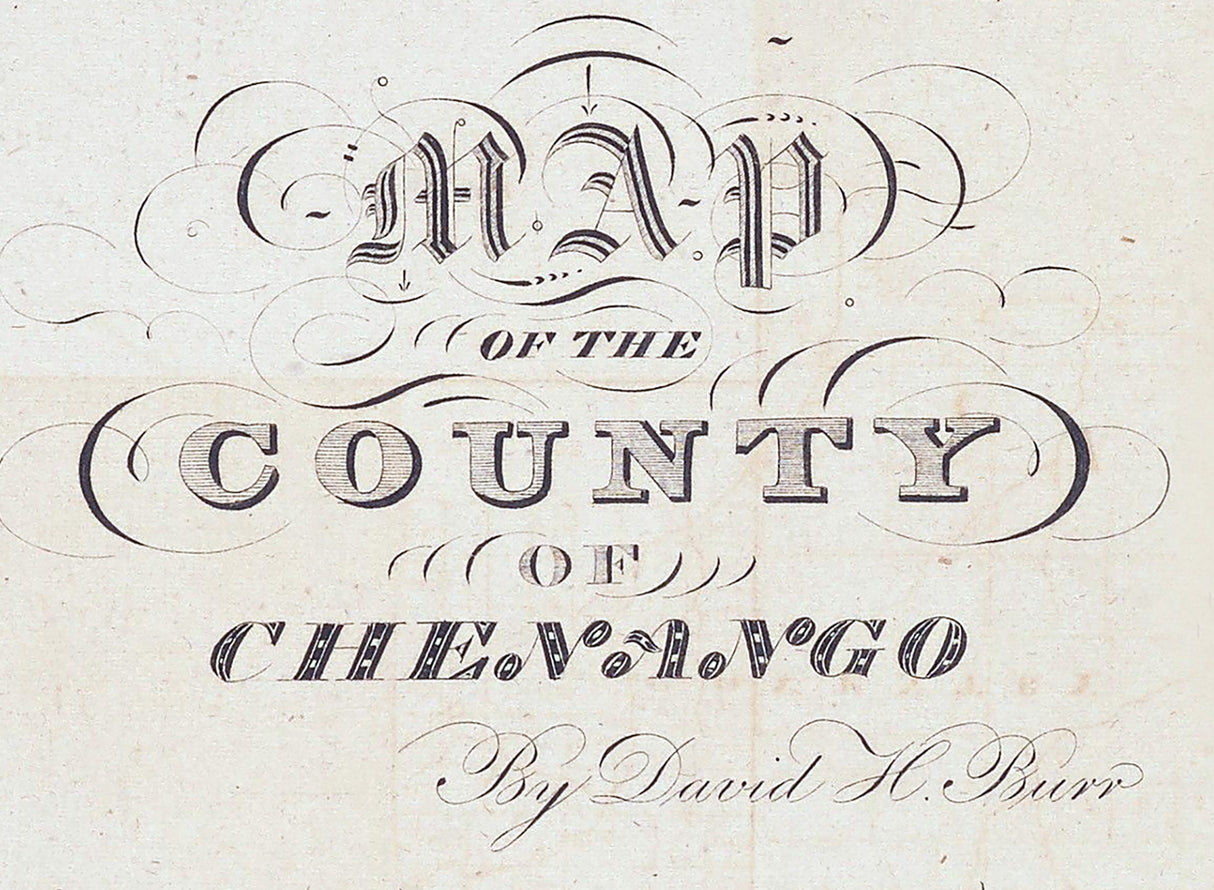 MAP
OF THE
COUNTY
OF
CHENANGO
By David H. Burr